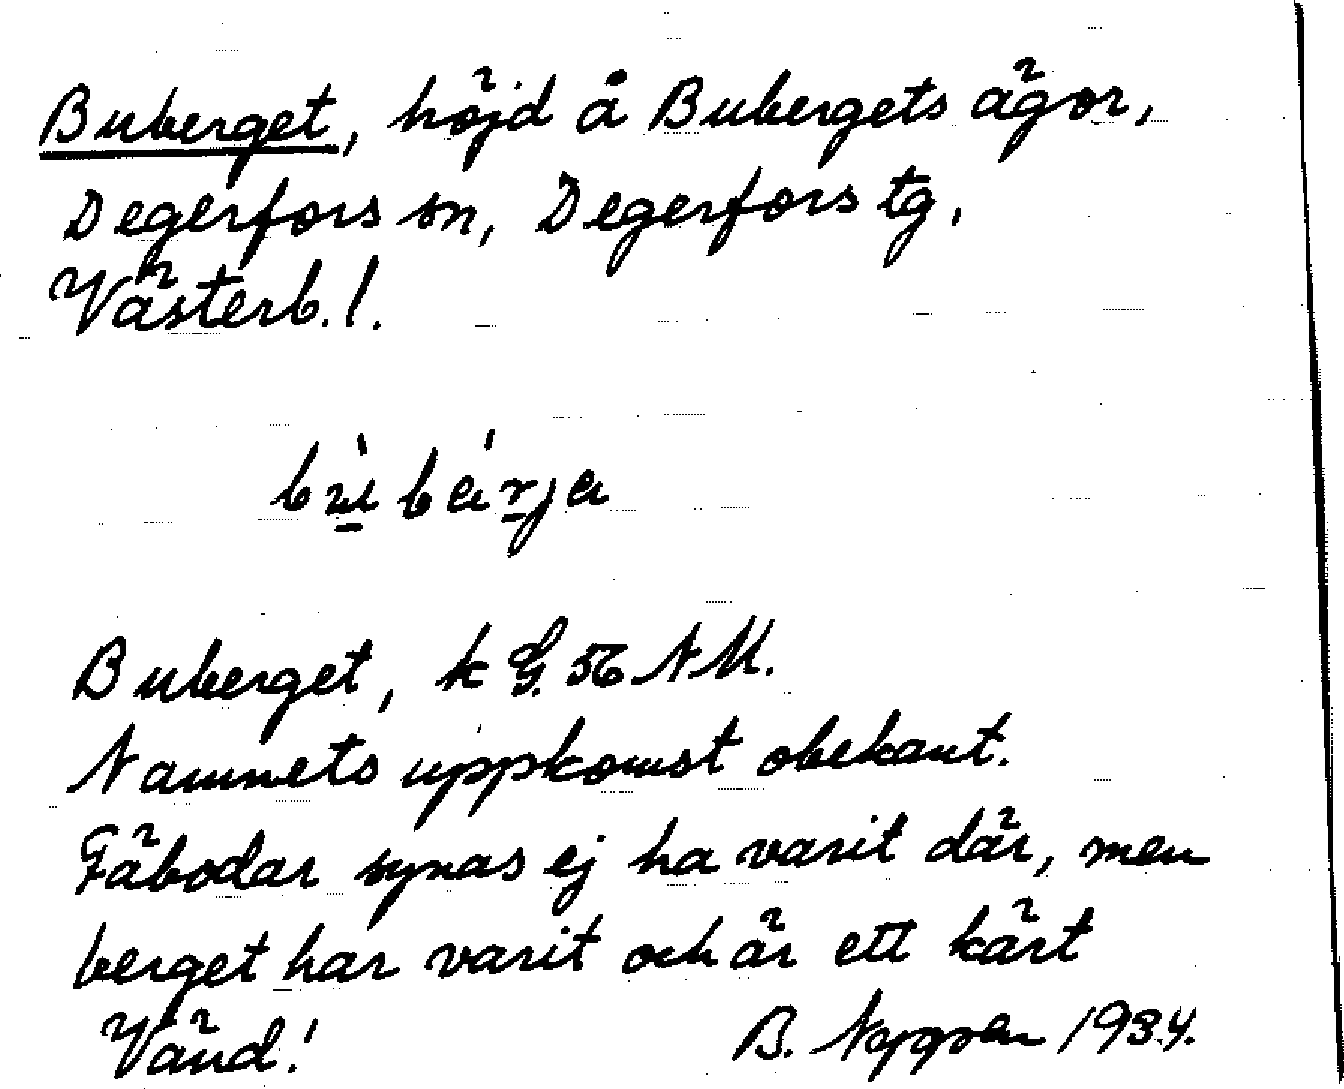 Buberget, höjd å Bubergets ägor,
Degerfors sn, Degerfors tg,
Västerb. l.
bu̱̇̀bá̱rja
Buberget, k G. 56 NU.
Namnets uppkomst obekant.
Fäbodar synas ej ha varit där, men
berget har varit och är ett kärt
Vänd! B. Nygren 1934.